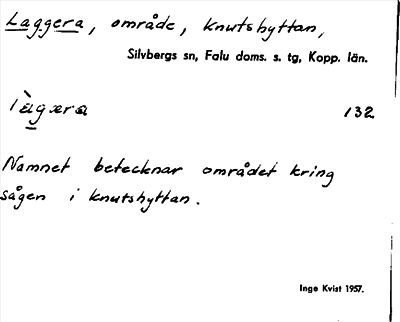 Laggera, område, Knutshyttan,
Silvbergs sn, Falu doms. s. tg, Kopp. län.
132
Namnet betecknar området kring
sågen i Knutshyttan.
Inga Kvist 1957.